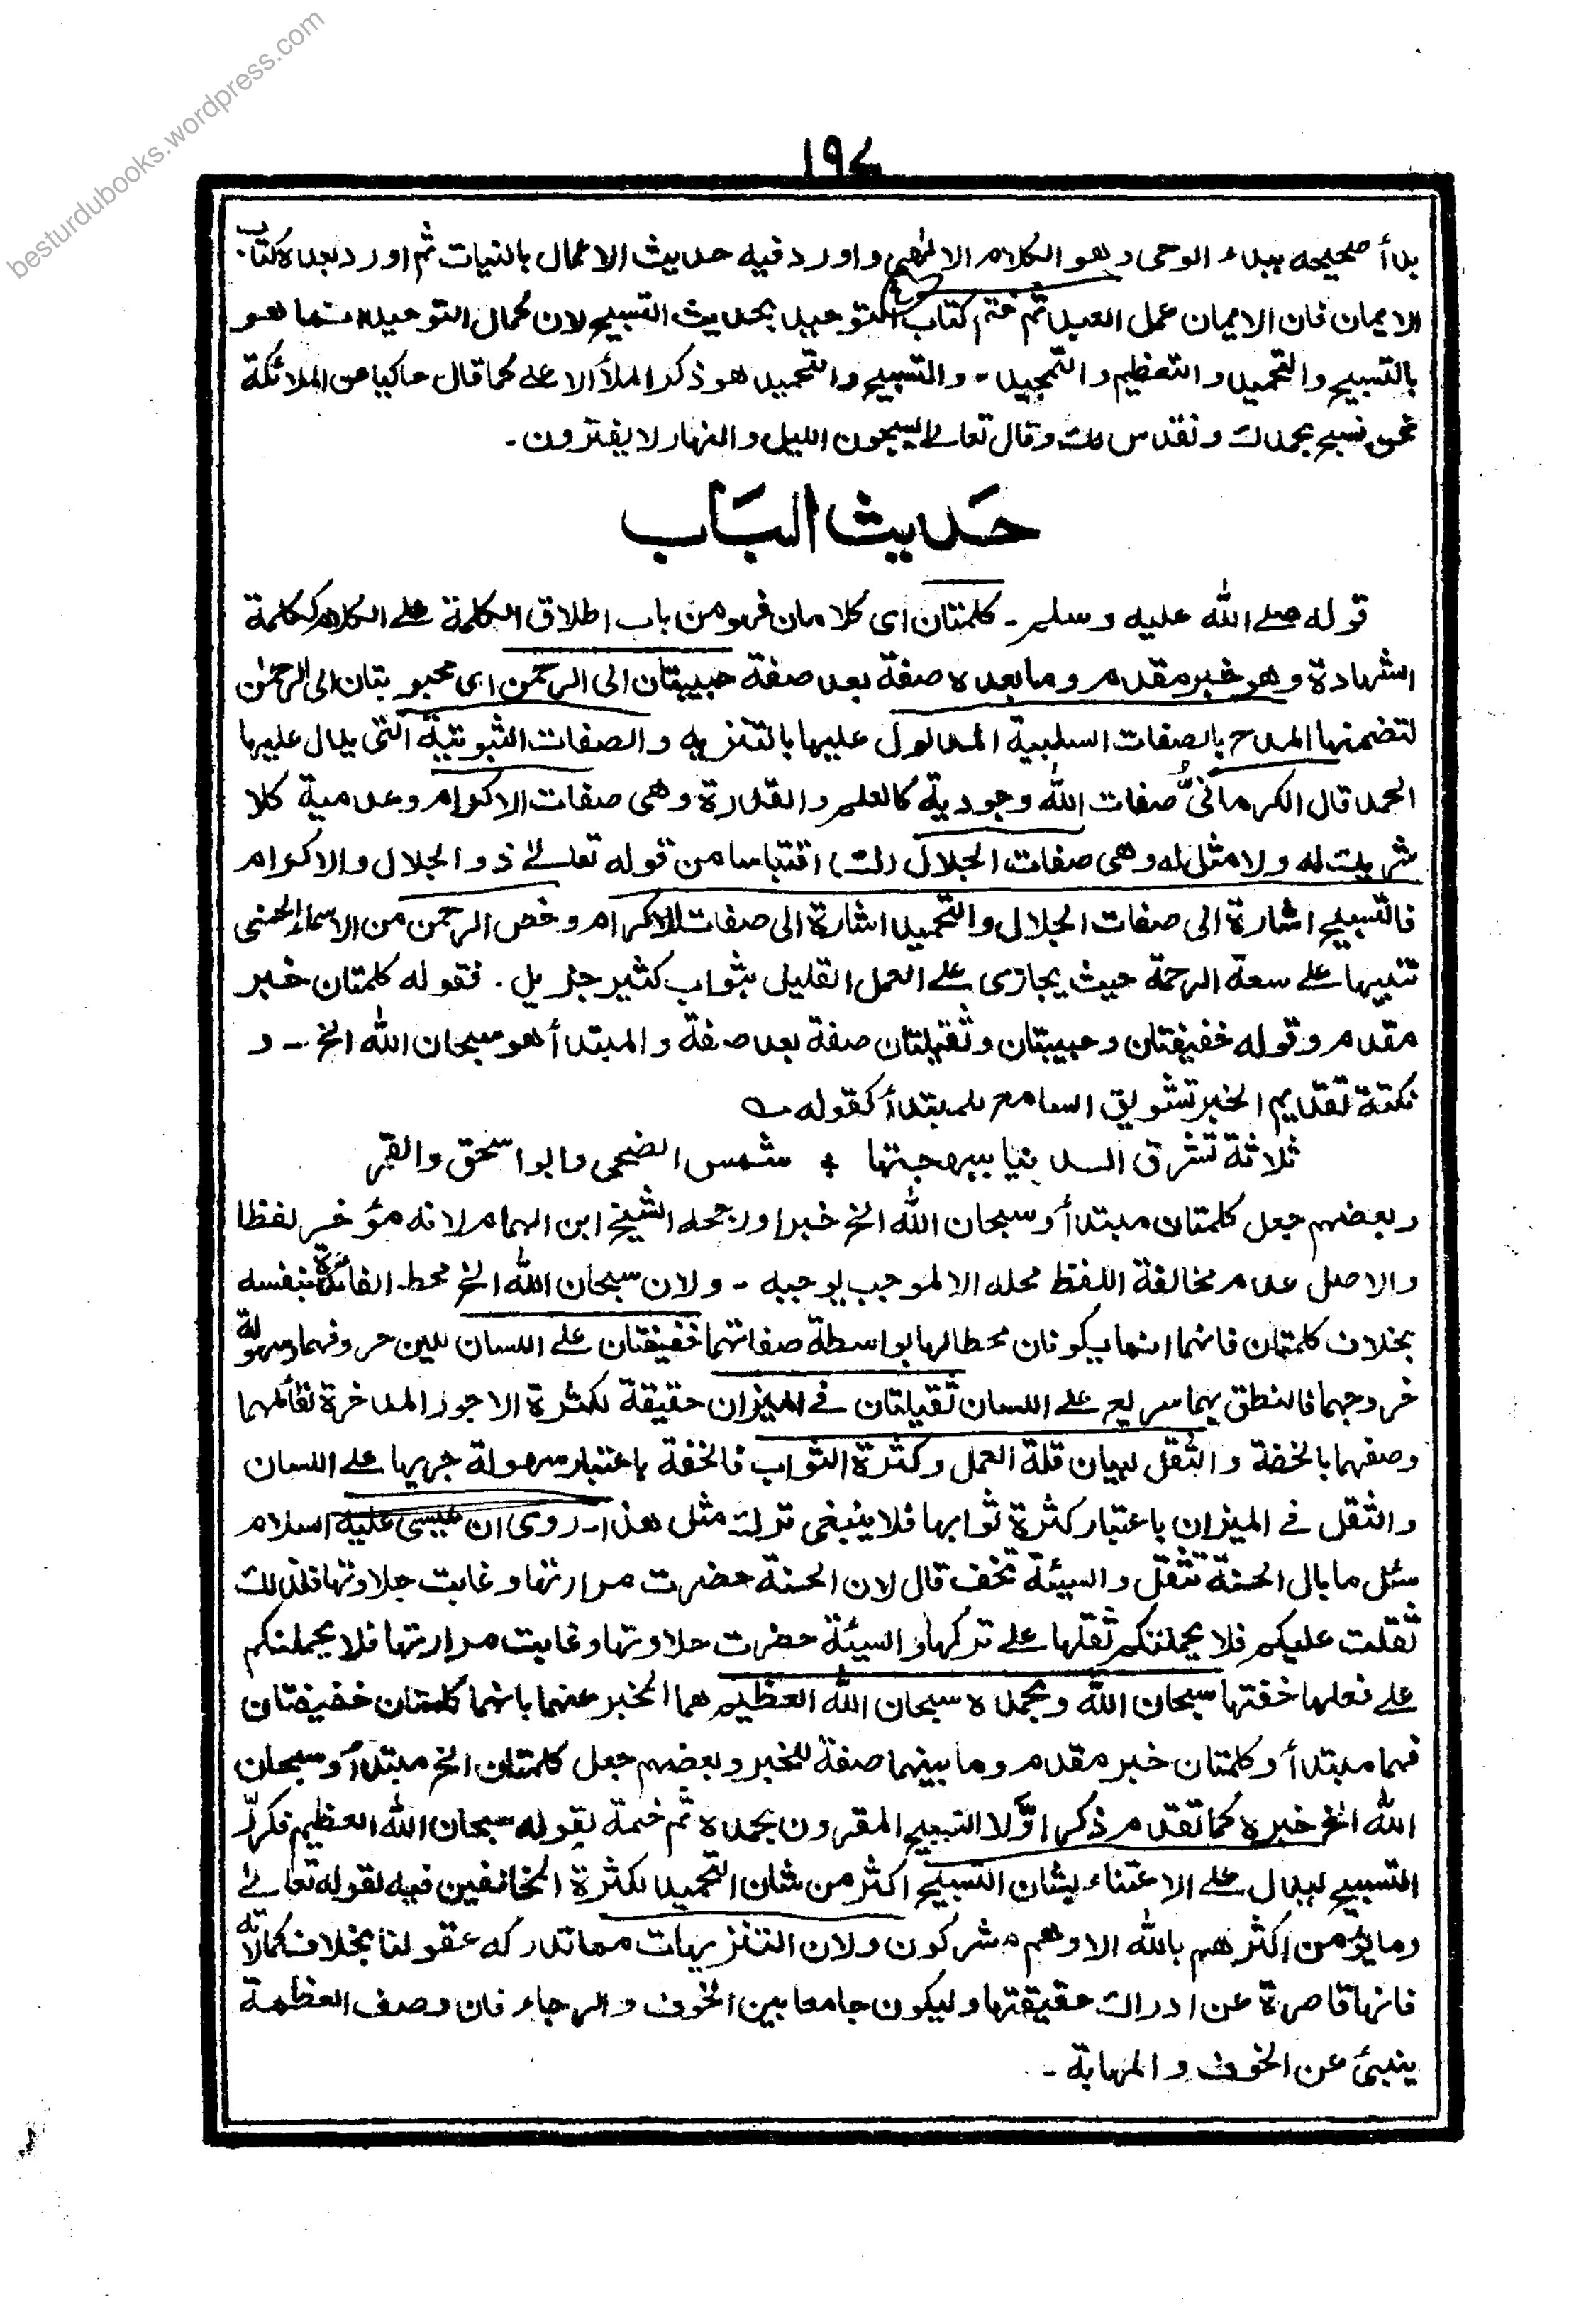 besturdubooks.wordpress.com
١٩٧
بدأ صحيحه ببدء الوحى وهو الكلام الالٰهى واورد فيه حديث الاعمال بالنيات ثم اورد بعده كتاب
الايمان فان الايمان عمل العبد ثم ختم كتاب التوحيد بحديث التسبيح لان كمال التوحيد انما هو
بالتسبيح والتحميد والتعظيم والتمجيد - والتسبيح والتحميد هو ذكر الملأ الاعلے كما قال حاكيا عن الملائكة
نحن نسبح بحمدك ونقدس لك وقال تعالے يسبحون الليل والنهار لا يفترون -
حَديث البَاب
قوله صلے الله عليه وسلم - كلمتان اى كلامان فهو من باب اطلاق الكلمة علے الكلام ككلمة
الشهادة وهو خبر مقدم وما بعده صفة بعد صفة حبيبتان الى الرحمٰن اى محبوبتان الى الرحمٰن
لتضمنها المدح بالصفات السلبية المدلول عليها بالتنزيه والصفات الثبوتية التى يدل عليها
الحمد قال الكرمانىؒ صفات الله وجودية كالعلم والقدرة وهى صفات الاكرام وعدمية كلا
شريك له ولا مثل له وهى صفات الجلال (لت) اقتباسا من قوله تعالے ذو الجلال والاكرام
فالتسبيح اشارة الى صفات الجلال والتحميد اشارة الى صفات الاكرام وخص الرحمن من الاسماء الحسنى
تنبيها علے سعة الرحمة حيث يجازى علے العمل القليل بثواب كثير جزيل . فقوله كلمتان خبر
مقدم وقوله خفيفتان وحبيبتان وثقيلتان صفة بعد صفة والمبتدأ هو سبحان الله الخ - و
نكتة تقديم الخبر تشويق السامع للمبتدأ كقوله ؎
ثلاثة تشرق الدنيا ببهجتها * شمس الضحى وابو اسحق والقمر
وبعضهم جعل كلمتان مبتدأ وسبحان الله الخ خبرا ورجحه الشيخ ابن الهمام لانه مؤخر لفظا
والاصل عدم مخالفة اللفظ محله الا لموجب يوجبه - ولان سبحان الله الخ محط الفائدة بنفسه
بخلاف كلمتان فانهما انما يكونان محطا لها بواسطة صفاتهما خفيفتان علے اللسان للين حروفهما وسهولة
خروجهما فالنطق بهما سريع علے اللسان ثقيلتان فے الميزان حقيقة لكثرة الاجور المدخرة لقائلهما
وصفهما بالخفة والثقل لبيان قلة العمل وكثرة الثواب فالخفة باعتبار سهولة جريها علے اللسان
والثقل فے الميزان باعتبار كثرة ثوابها فلا ينبغى ترك مثل هذا - روى ان عيسى عليه السلام
سئل ما بال الحسنة تثقل والسيئة تخف قال لان الحسنة حضرت مرارتها وغابت حلاوتها فلذلك
ثقلت عليكم فلا يحملنكم ثقلها علے تركها والسيئة حضرت حلاوتها وغابت مرارتها فلا يحملنكم
علے فعلها خفتها سبحان الله وبحمده سبحان الله العظيم هما الخبر عنهما بانهما كلمتان خفيفتان
فهما مبتدأ وكلمتان خبر مقدم وما بينهما صفة للخبر وبعضهم جعل كلمتان الخ مبتدأ وسبحان
الله الخ خبره كما تقدم ذكر اوّلا التسبيح المقرون بحمده ثم ختمه بقوله سبحان الله العظيم فكرّر
التسبيح ليدل علے الاعتناء بشان التسبيح اكثر من شان التحميد لكثرة المخالفين فيه لقوله تعالے
وما يؤمن اكثرهم بالله الا وهم مشركون ولان التنزيهات مما تدركه عقولنا بخلاف كمالاته
فانها قاصرة عن ادراك حقيقتها وليكون جامعا بين الخوف والرجاء فان وصف العظمة
ينبئ عن الخوف والمهابة -